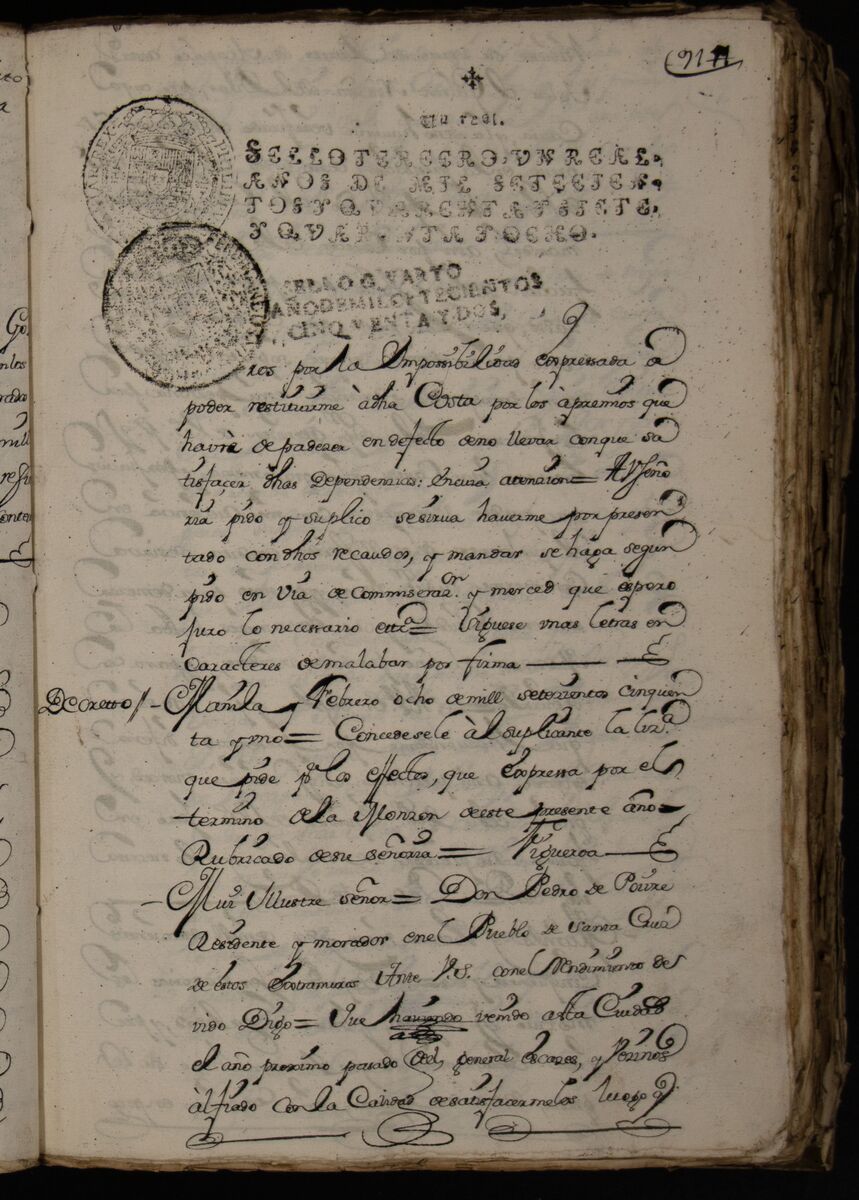 (91
Un real.
SELLO TERCERO, UN REAL,
AÑOS DE MIL SETECIEN-
TOS Y QUARENTA Y SIETE,
Y QUARENTA Y OCHO.
SELLO QVARTO
AÑO DE MIL SETECIENTOS,
CINQVENTA Y DOS,
por la Impossibilidad expressada de
poder restituirme à dha Costa por los àpremios que
havrè de padezer en defecto de no llevar con que sa
tisfaçer dhas Dependencias; en cuia atenzion= A VSeño
ria pido y suplico se sirva haverme por presen
tado con dhos recaudos, y mandar se haga segun
pido en via de Commiseraz.on y merced que espero
juro lo necessario ettc.a= Siguese unas letras en
Caracteres de malabar por firma
Decretto//- Manila y Febrero ocho de mill setezientos cinquen
ta y uno= Concedesele àl suplicante la liz.a
que pide p.a los effectos, que Expressa por el
termino de la Monzon de este presente año=
Rubricado de su señoria= Figueroa
- Mui Illustre señor= Don Pedro de
Residente y morador en el Pueblo de Santa Cruz
de estos Extramuros Ante V.S. con el Rendimiento de
vido Digo= Que haviendo venido a esta Ciudad
el año proximo pasado del general
àl fiado con la Calidad de satisfacermelos luego q.